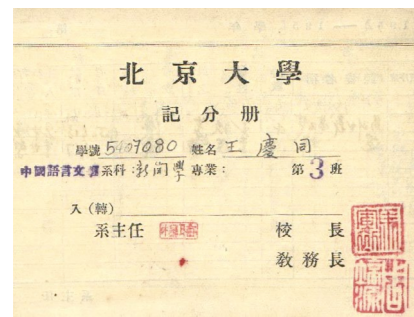 北京大學
記分册
學號 5407080 姓名 王慶同
中國語言文學系科：新闻學 專業： 第3班
入（轉）
系主任 校長
教務長